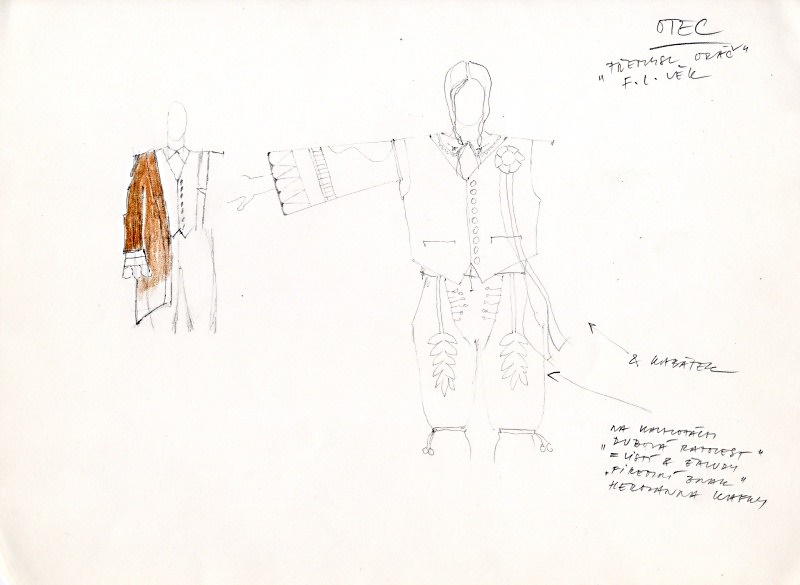 OTEC
"PŘEMYSL ORÁČ"
F. L. VĚK
& KABÁTEK
NA KALHOTÁCH
"DUBOVÁ RATOLEST"
= LISTÍ & ŽALUDY
"FIREMNÍ ZNAK"
HERMANNA KAFKY